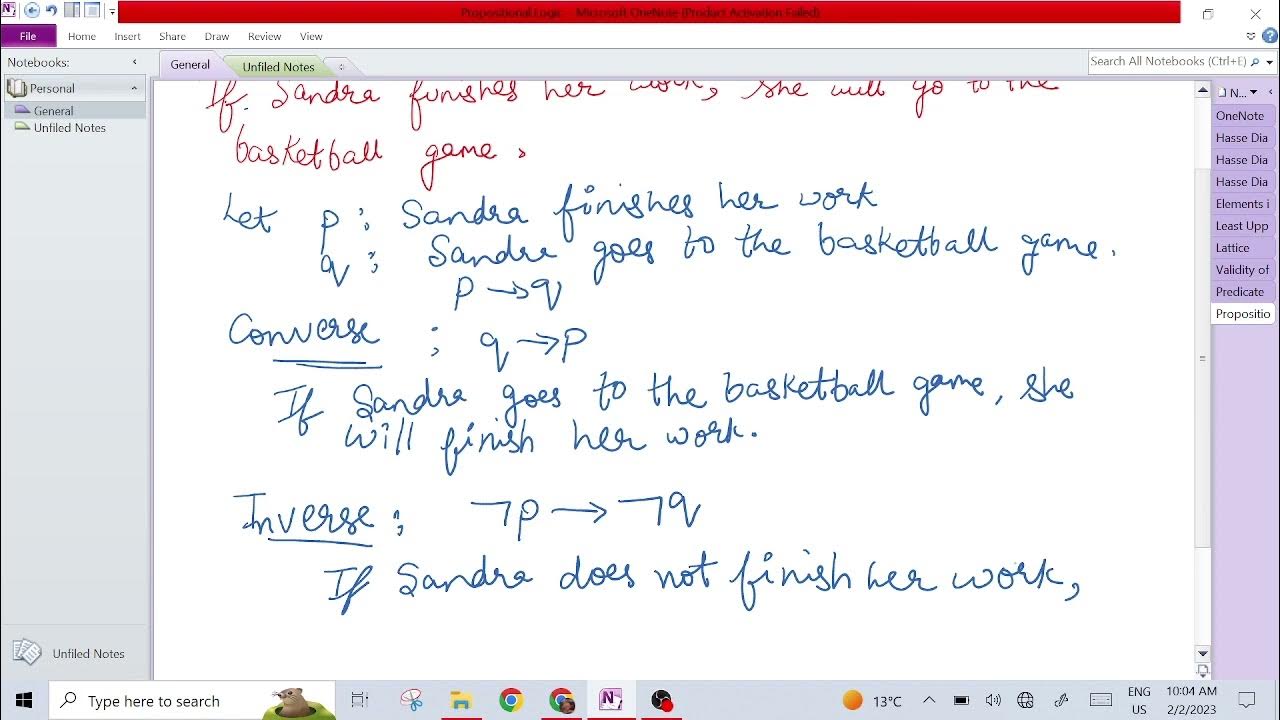 Propositional Logic - Microsoft OneNote (Product Activation Failed)
File Home Insert Share Draw Review View
Notebooks:
General Unfiled Notes
Search All Notebooks (Ctrl+E)
Personal
General
Unfiled Notes
If Sandra finishes her work, she will go to the
basketball game.
Let p : Sandra finishes her work
q : Sandra goes to the basketball game.
p → q
Converse : q → p
If Sandra goes to the basketball game, she
will finish her work.
Inverse : ¬p → ¬q
If Sandra does not finish her work,
N...
OneNote
Hasse Dia
Hasse Dia
Hasse Dia
Elements i
Least Upp
Lattice
Validity of
Predicate
Propositio
Unfiled Notes
Type here to search
13°C
ENG
US
10:04 AM
2/2/2023